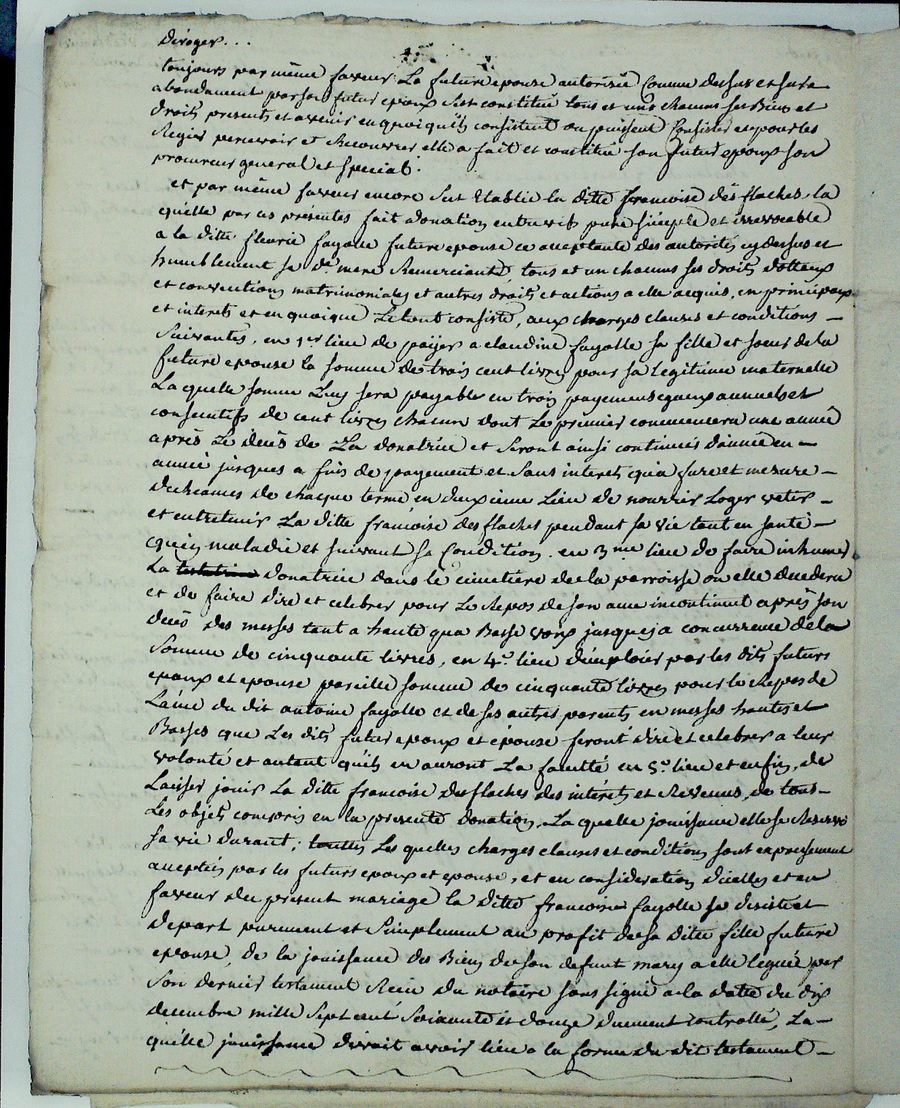 déroger...
toujours par même faveur La future epouse autorisée Comme dessus et sura
abondament par son futur epoux S'est constitué tous et uns chacuns ses Biens et
droits presents et avenir en quoi qu'ils consistent ou puissent Consister et pour les
Regir percevoir et Recouvrer elle a fait et constitué son futur epoux son
procureur general et special.
et par même faveur encore S'est Etablie la ditte francoise des flaches, la
quelle par ces présentes fait adonation entrevifs pure simple et irrevocable
a la ditte fleurie fayolle future epouse ce acceptante des autorités cy dessus et
humblement sa de mere Remerciante tous et un chacuns ses droits dotteaux
et conventions matrimoniales et autres droits et actions a elle acquis, en principaux
et interets et en quoique Le tout consiste, aux charges clauses et conditions
Suivantes, en 1er lieu de payer a claudine fayolle sa fille et soeur de la
future epouse la somme de trois cent livres pour sa Legitime maternelle
La quelle somme Luy sera payable en trois payements egaux annuels et
consecutifs de cent livres chacun dont Le premier commencera une année
après Le décès de La donatrice et Seront ainsi continués d'année en
année jusques a fin de payement et Sans interet qu'a fur et mesure
d'echeances de chaque terme en deuxieme Lieu de nourrir Loger vetir
et entretenir La ditte francoise des flaches pendant sa vie tant en santé
qu'en maladie et suivant sa Condition. en 3me lieu de faire inhumer
La testatrice donatrice dans le cimetière de la parroisse ou elle decedera
et de faire dire et celebrer pour Le Repos de son ame incontinent après son
décès des messes tant a haute qua Basse voix jusques a concurrence de la
Somme de cinquante livres, en 4e lieu d'employer par les dits futurs
epoux et epouse pareille somme de cinquante livres pour le Repos de
L'ame du dit antoine fayolle et de ses autres parents en messes hautes et
Basses que Les dits futur epoux et epouse feront dire et celebrer a leur
volonté et autant qu'ils en auront La faculté en 5e lieu et enfin, de
Laisser jouir La ditte francoise des flaches des intérets et Revenus de tous
Les objets compris en la presente donation, La quelle jouissance elle se Reserve
sa vie durant, touttes Les quelles charges clauses et conditions sont expressement
acceptées par les futurs epoux et epouse, et en consideration d'icelles et en
faveur du present mariage la ditte francoise fayolle se desiste et
depart purement et Simplement au profit de sa ditte fille future
epouse, de la jouissance des Biens de son defunt mary a elle leguée par
Son dernier testament Recu du notaire sous signé a la datte du dix
decembre mille Sept cent Soixante et douze duement controllé, La
quelle jouissance devait avoir lieu a la forme du dit testament